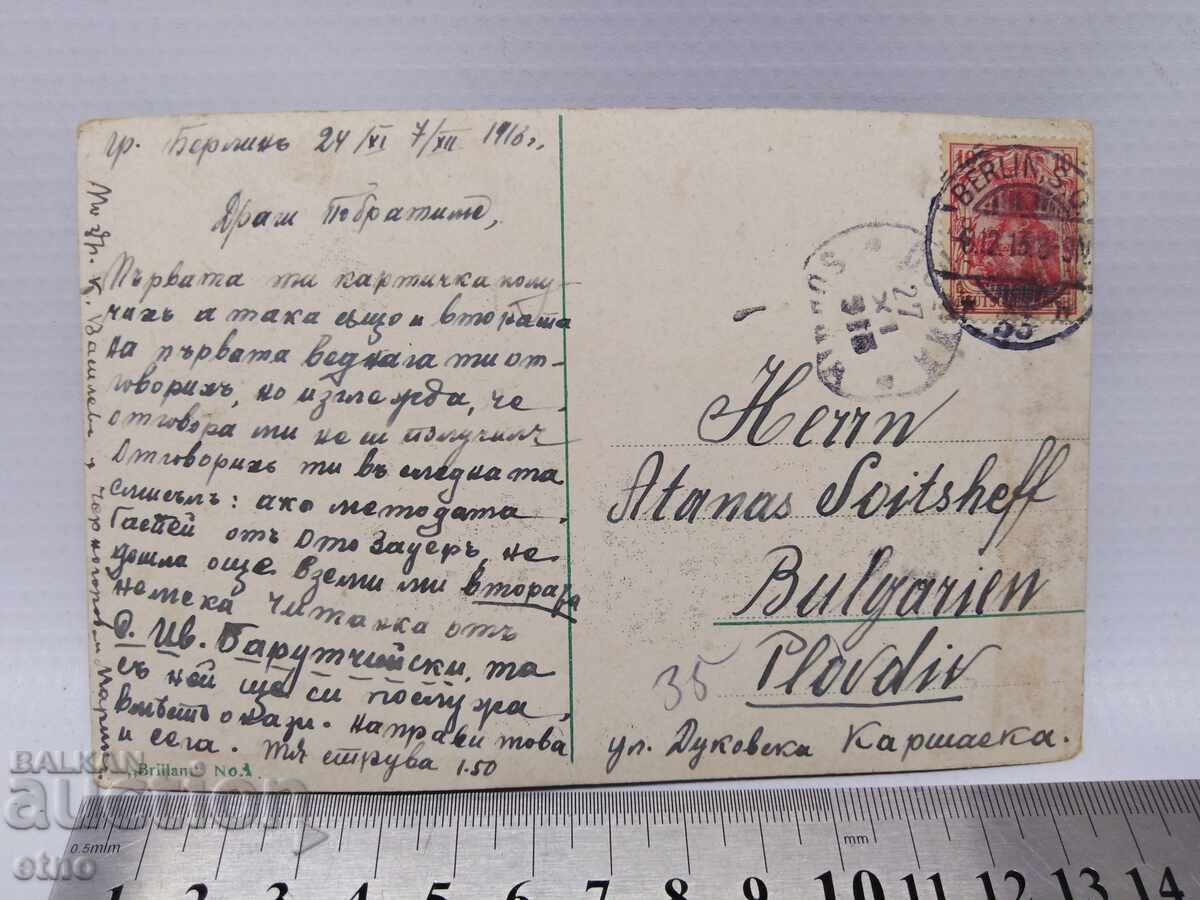 гр. Берлинъ 24/XI 7/XII 191 г.
Драги Побратиме,
Първата ти картичка полу-
чихъ а така също и втората
на първата веднага ти от-
говорихъ, но изглежда, че
отговора ми не си получилъ
Отговорихъ ти въ следната
смисълъ: ако методата
Гаспей отъ Ото Зауеръ, не
дошла още вземи ми втората
немска Читанка отъ
Д. Ив. Барутчийски, та
съ ней ще си послужа,
вместо онази. Направи това
и сега. Тя струва 1.50
По Гр. К. Василевъ
"Brillant" No.1
BERLIN, S.O.
33
10 10
27
XI
Herrn
Atanas Soitsheff
Bulgarien
Plovdiv
35
ул. Дуковска Каршиека.
BALKAN
auction
etno
0.5mm
mm
1 2 3 4 5 6 7 8 9 10 11 12 13 14